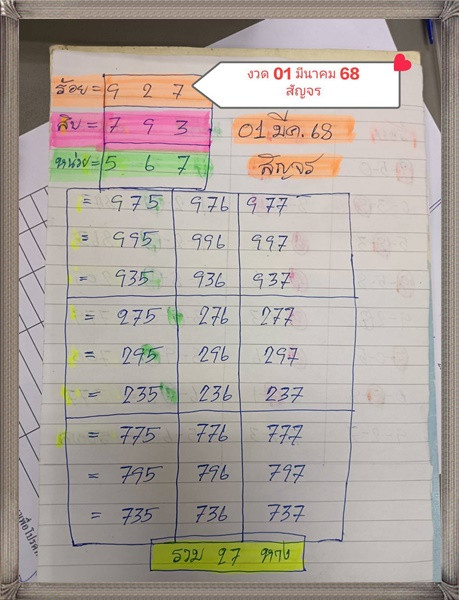 งวด 01 มีนาคม 68
สัญจร
ร้อย = 9 2 7
สิบ = 7 9 3
01 มีค. 68
หน่วย = 5 6 7
สัญจร
= 975 976 977
= 995 996 997
= 935 936 937
= 275 276 277
= 295 296 297
= 235 236 237
= 775 776 777
= 795 796 797
= 735 736 737
รวม 27 หาง